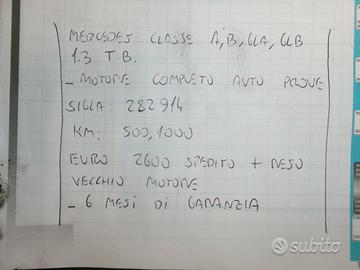 MERCEDES CLASSE A,B,GLA,GLB
1.3 T.B.
- MOTORE COMPLETO AUTO PROVE
SIGLA: 282914
KM: 500,1000
EURO 2600 SPEDITO + RESO
VECCHIO MOTORE
- 6 MESI DI GARANZIA
subito